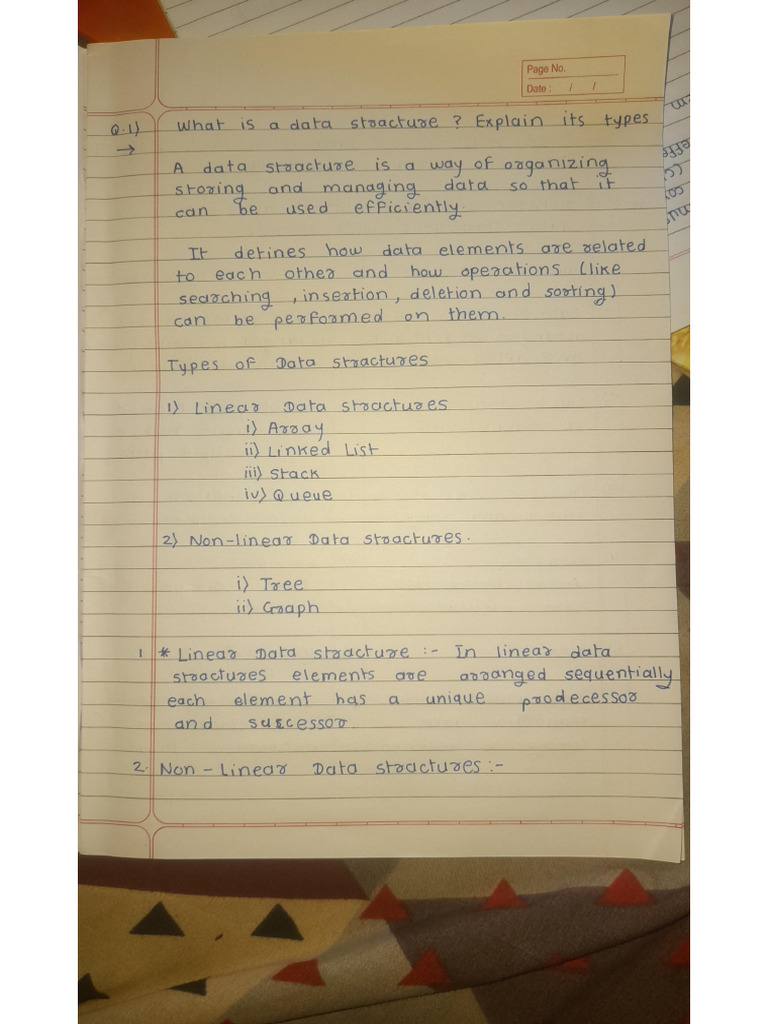 Page No.
Date : / /
Q.1) What is a data stracture ? Explain its types
→
A data stracture is a way of organizing
storing and managing data so that it
can be used efficiently.
It defines how data elements are related
to each other and how operations (like
searching , insertion, deletion and sorting)
can be performed on them.
Types of Data stractures
1) Linear Data stractures
i) Array
ii) Linked List
iii) Stack
iv) Queue
2) Non-linear Data stractures.
i) Tree
ii) Graph
1 * Linear Data stracture :- In linear data
stractures elements are arranged sequentially
each element has a unique prodecessor
and successor
2. Non - Linear Data stractures :-